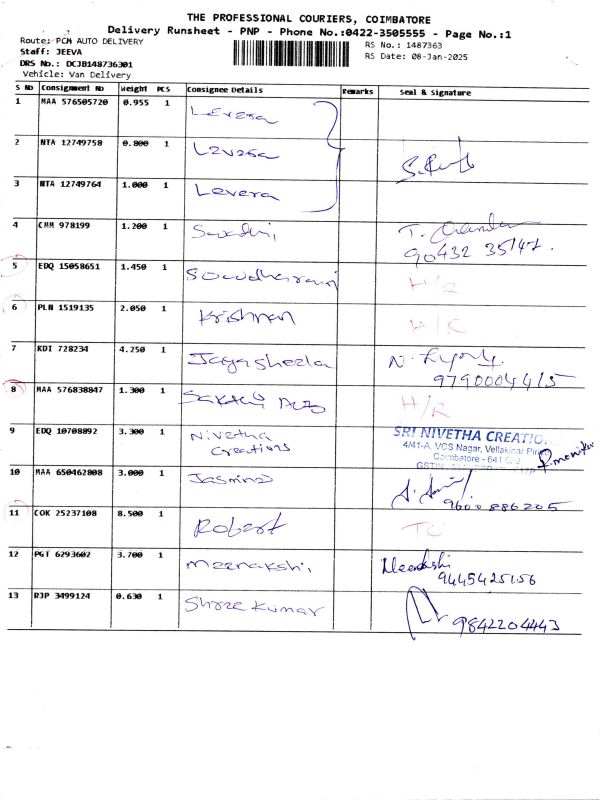 THE PROFESSIONAL COURIERS, COIMBATORE
Delivery Runsheet - PNP - Phone No.:0422-3505555 - Page No.:1
Route: PCM AUTO DELIVERY
RS No.: 1487363
Staff: JEEVA
RS Date: 08-Jan-2025
DRS No.: DCJB148736301
Vehicle: Van Delivery
S No Consignment No Weight PCS Consignee Details Remarks Seal & Signature
1 MAA 576505720 0.955 1 Levera
2 NTA 12749758 0.800 1 Levera
3 NTA 12749764 1.000 1 Levera
4 CMM 978199 1.200 1 T. Chandra
90432 35147.
5 EDQ 15058651 1.450 1 Soundharani H/R
6 PLN 1519135 2.050 1 Krishnan H/R
7 KDI 728234 4.250 1 Jayasheela
9790004415
8 MAA 576838847 1.300 1 Sakthi Auto H/R
9 EDQ 10708892 3.300 1 Nivetha
Creations
SRI NIVETHA CREATIONS
4/41-A, VCS Nagar, Vellakinar
Coimbatore - 641
GSTIN
10 MAA 650462808 3.000 1 Jasmine
9600886205
11 COK 25237108 8.500 1 Robert
12 PGT 6293602 3.700 1 Meenakshi, Meenakshi
9445425156
13 RJP 3499124 0.630 1 Shree Kumar
9842204443